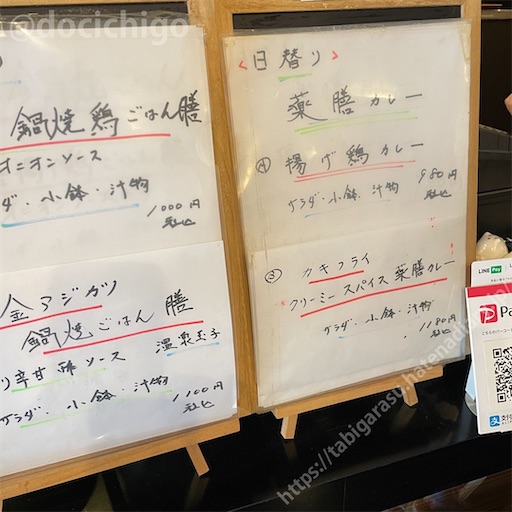 @docichigo
鍋焼鶏ごはん膳
オニオンソース
ダ・小鉢・汁物
1000円
税込
金アジカツ
鍋焼ごはん膳
辛甘酢ソース
温泉玉子
サラダ・小鉢・汁物
1100円
税込
<日替り>
薬膳カレー
揚げ鶏カレー
サラダ・小鉢・汁物
980円
税込
カキフライ
クリーミースパイス薬膳カレー
サラダ・小鉢・汁物
1180円
税込
LINE Pay
Pa